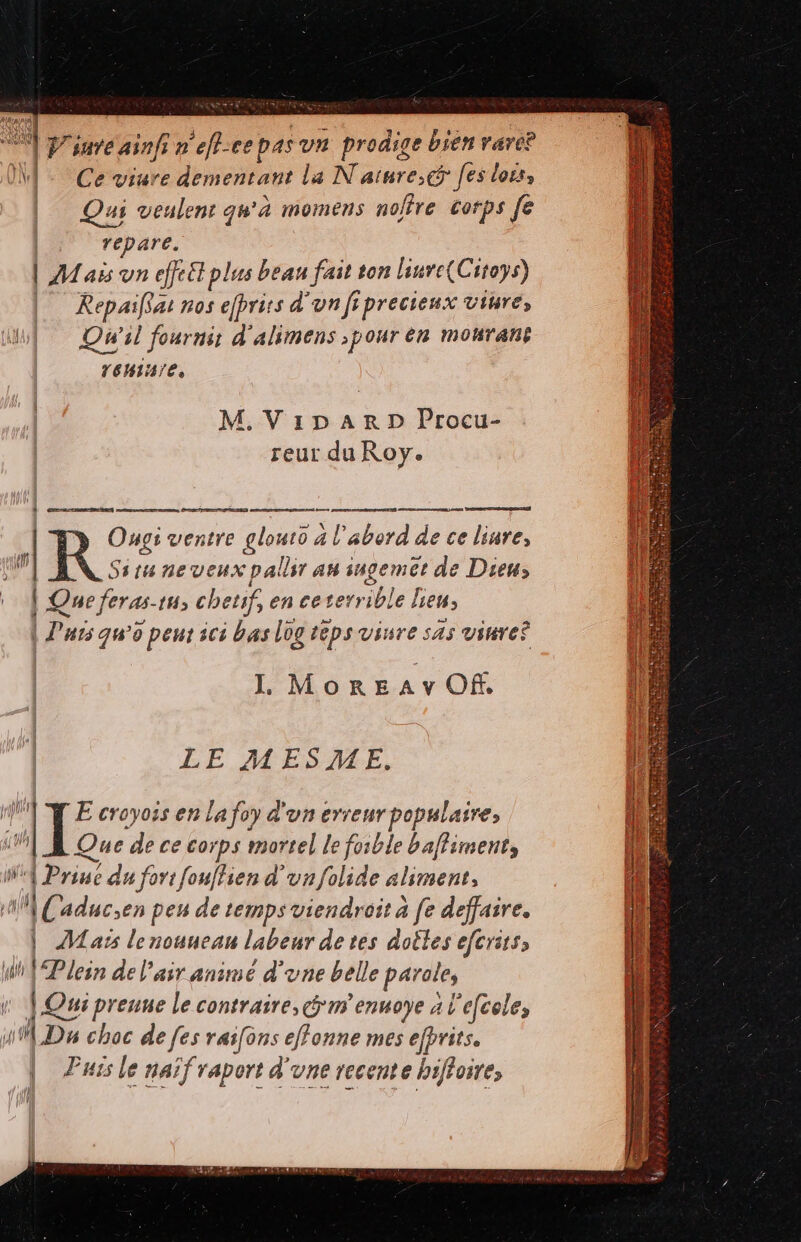 Viure ainſi n'eſt-ce pas vn prodige bien rare?
Ce viure dementant la Nature, & ſes lois,
Qui veulent qu'à momens noſtre corps ſe
repare.
Mais vn effect plus beau fait ton liure (Citoys)
Repaiſſāt nos eſprits d'vn ſi precieux viure,
Qu'il fournit d'alimens, pour en mourant
reuiure.
M. VIDARD Procu-
reur du Roy.
ROugi ventre gloutō à l'abord de ce liure,
Si tu ne veux pallir au iugemēt de Dieu,
Que feras-tu, chetif, en ce terrible lieu,
Puis qu'ō peut ici bas lōg tēps viure sās viure?
I. MOREAV Off.
LE MESME.
IE croyois en la foy d'vn erreur populaire,
Que de ce corps mortel le foible baſtiment,
Priué du fort ſouſtien d'vn ſolide aliment,
Caduc, en peu de temps viendroit à ſe deffaire.
Mais le nouueau labeur de tes doctes eſcrits,
Plein de l'air animé d'vne belle parole,
Qui preuue le contraire, & m'enuoye à l'eſcole,
Du choc de ſes raiſons eſtonne mes eſprits.
Puis le naïf raport d'vne recente hiſtoire,